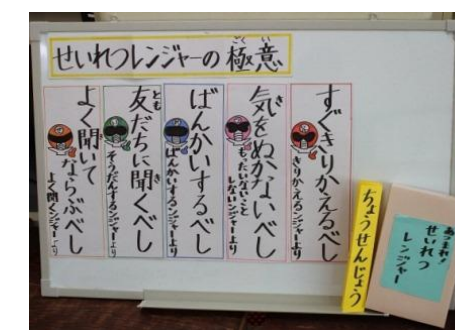 せいれつレンジャーの極意
ごくい
すぐきりかえるべし
きりかえるンジャーより
気をぬかないべし
き
もったいないことしないンジャーより
ばんかいするべし
ばんかいするンジャーより
友だちに聞くべし
とも
そうだんするンジャーより
よく聞いてならぶべし
よく聞くンジャーより
ちょうせんじょう
あつまれ!
せいれつ
レンジャー